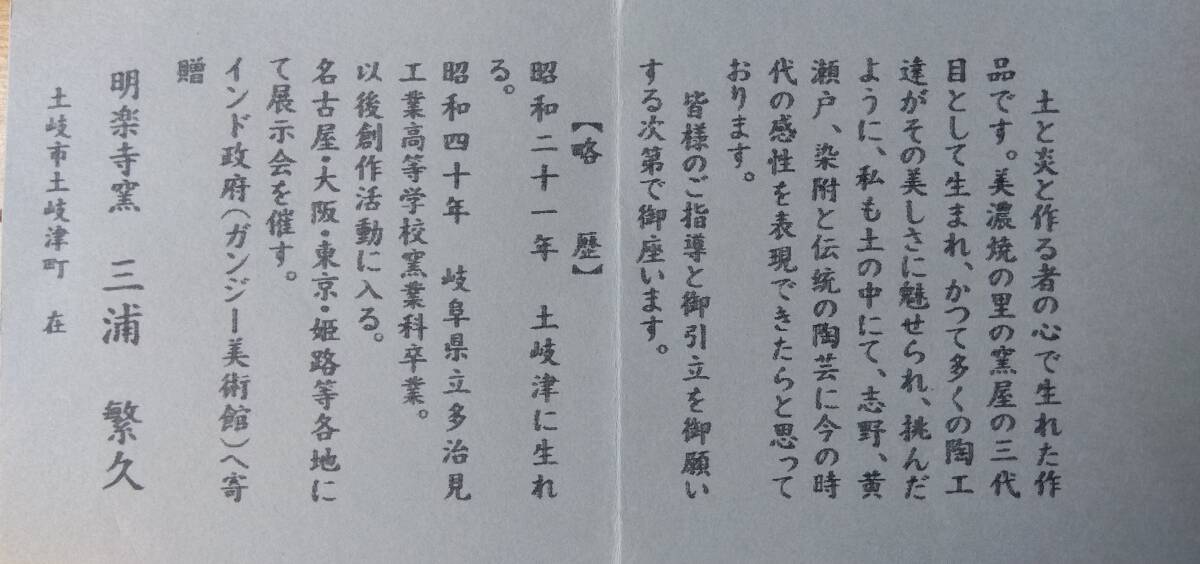 土と炎と作る者の心で生れた作
品です。美濃焼の里の窯屋の三代
目として生まれ、かつて多くの陶工
達がその美しさに魅せられ、挑んだ
ように、私も土の中にて、志野、黄
瀬戸、染附と伝統の陶芸に今の時
代の感性を表現できたらと思って
おります。
皆様のご指導と御引立を御願い
する次第で御座います。
【略歴】
昭和二十一年 土岐津に生れ
る。
昭和四十年 岐阜県立多治見
工業高等学校窯業科卒業。
以後創作活動に入る。
名古屋・大阪・東京・姫路等各地に
て展示会を催す。
インド政府(ガンジー美術館)へ寄
贈
明楽寺窯 三浦 繁久
土岐市土岐津町 在